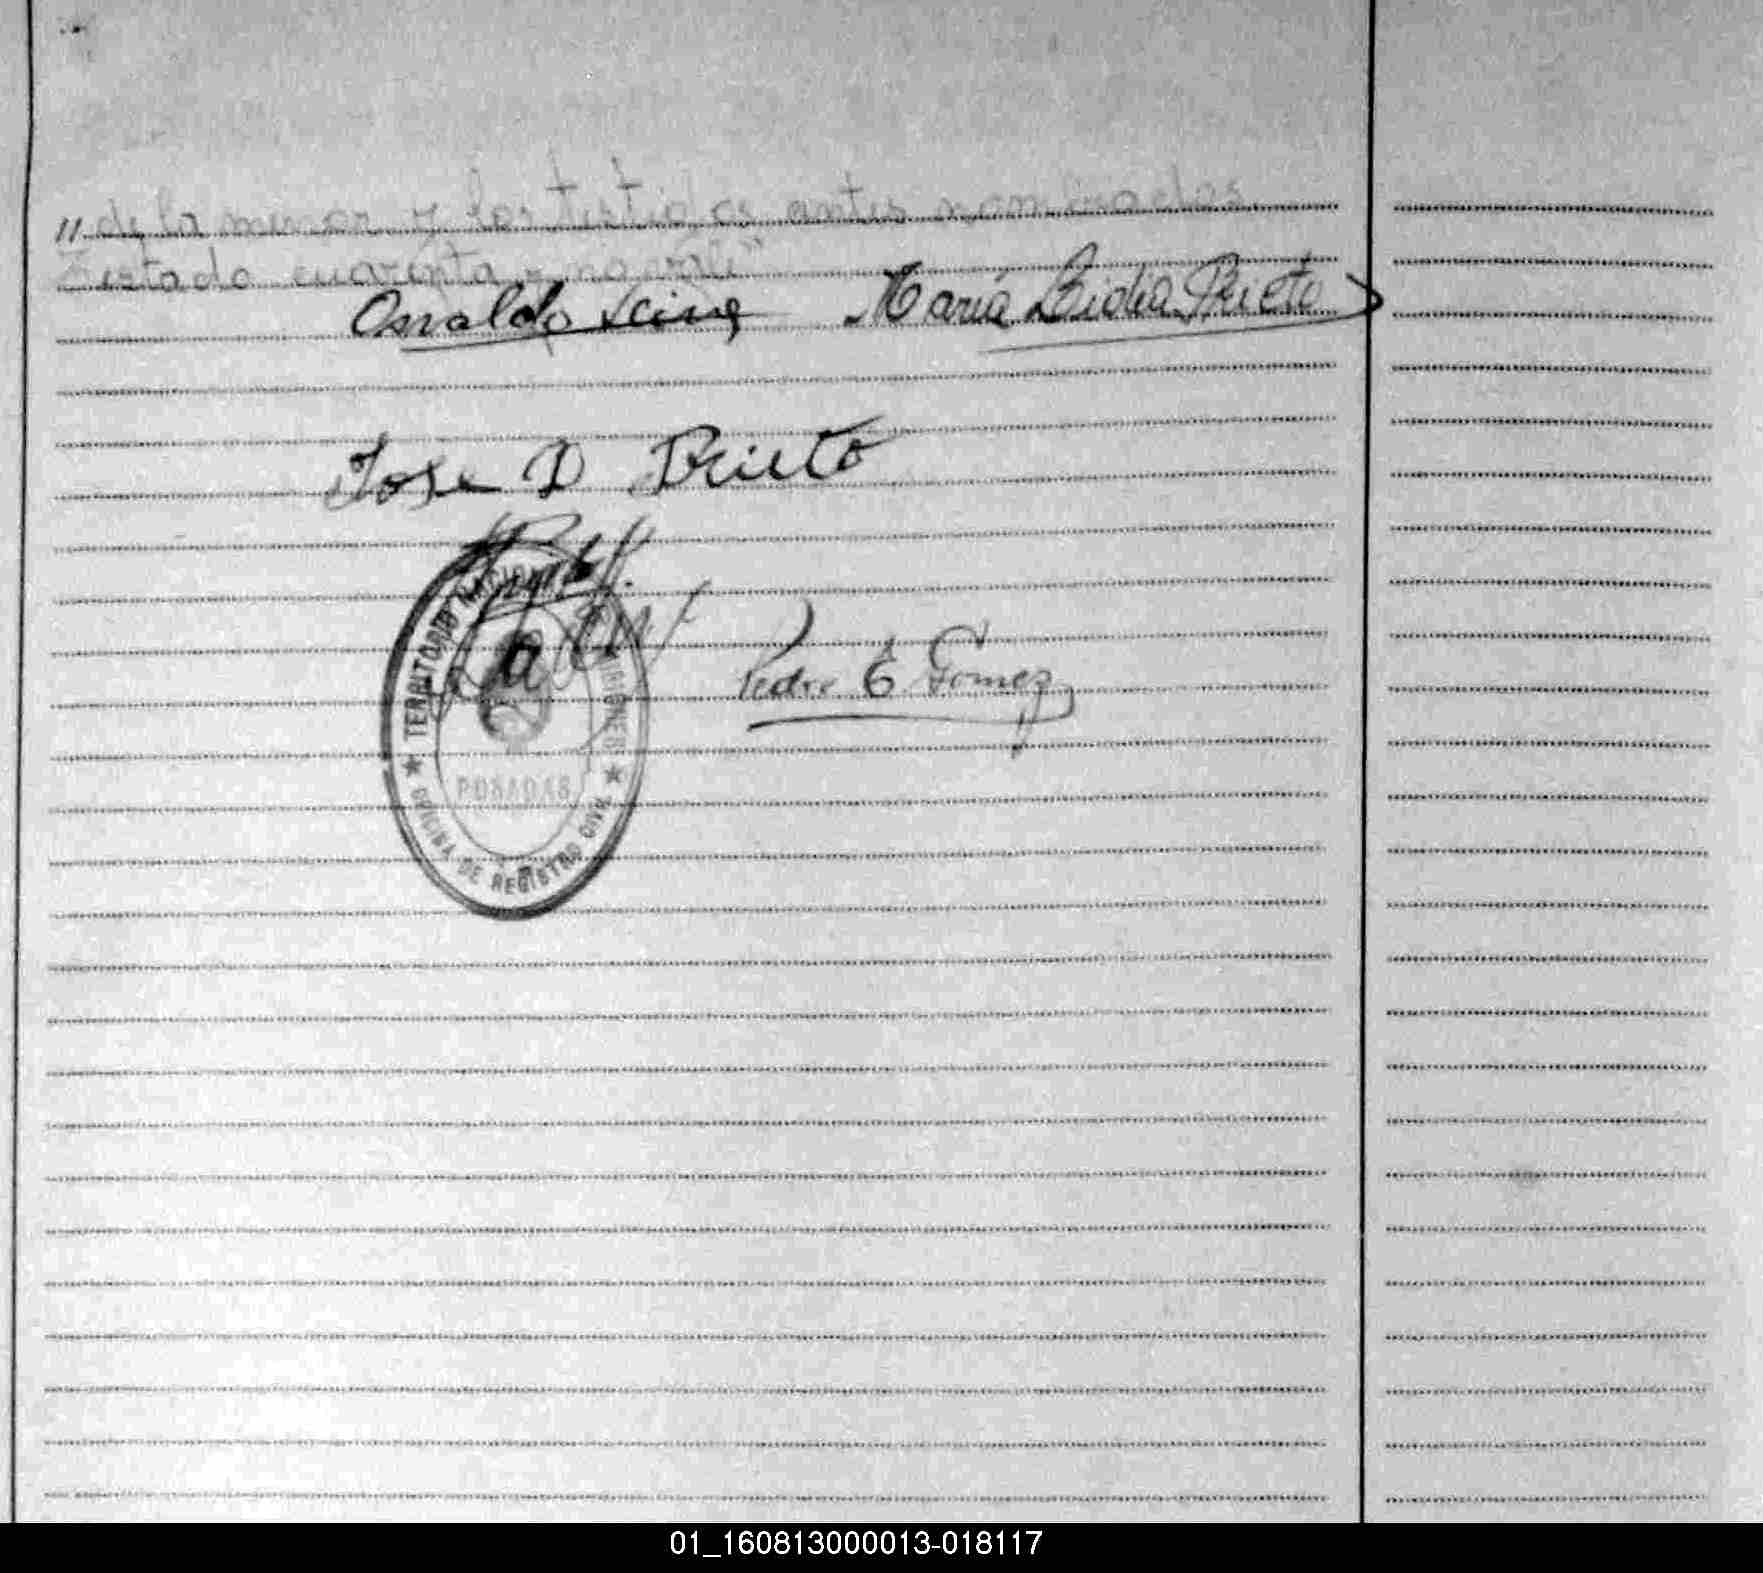 11 de la menor y los testigos antes nombrados
Testado cuarenta y no vale
Osvaldo
María Lidia Prieto
Jose D Prieto
TERRITORIO NACIONAL MISIONES
Pedro E Gomez
POSADAS
OFICINA DE REGISTRO CIVIL
01_160813000013-018117